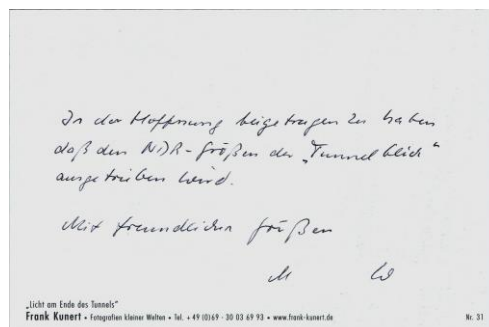 In der Hoffnung beigetragen zu haben
daß den NDR-Größen der „Tunnelblick“
ausgetrieben wird.
Mit freundlichen Grüßen
M W
„Licht am Ende des Tunnels“
Frank Kunert • Fotografien kleiner Welten • Tel. + 49 (0)69 - 30 03 69 93 • www.frank-kunert.de
Nr. 31